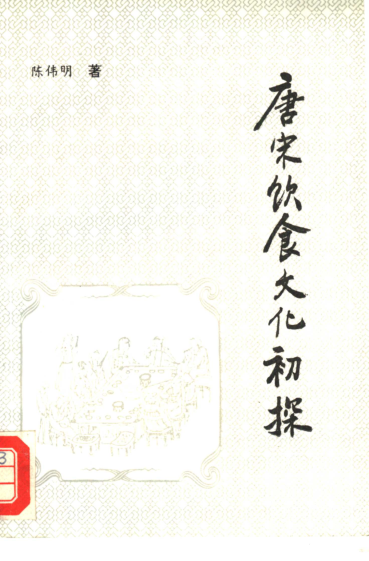 陈伟明 著
唐宋饮食文化初探
3